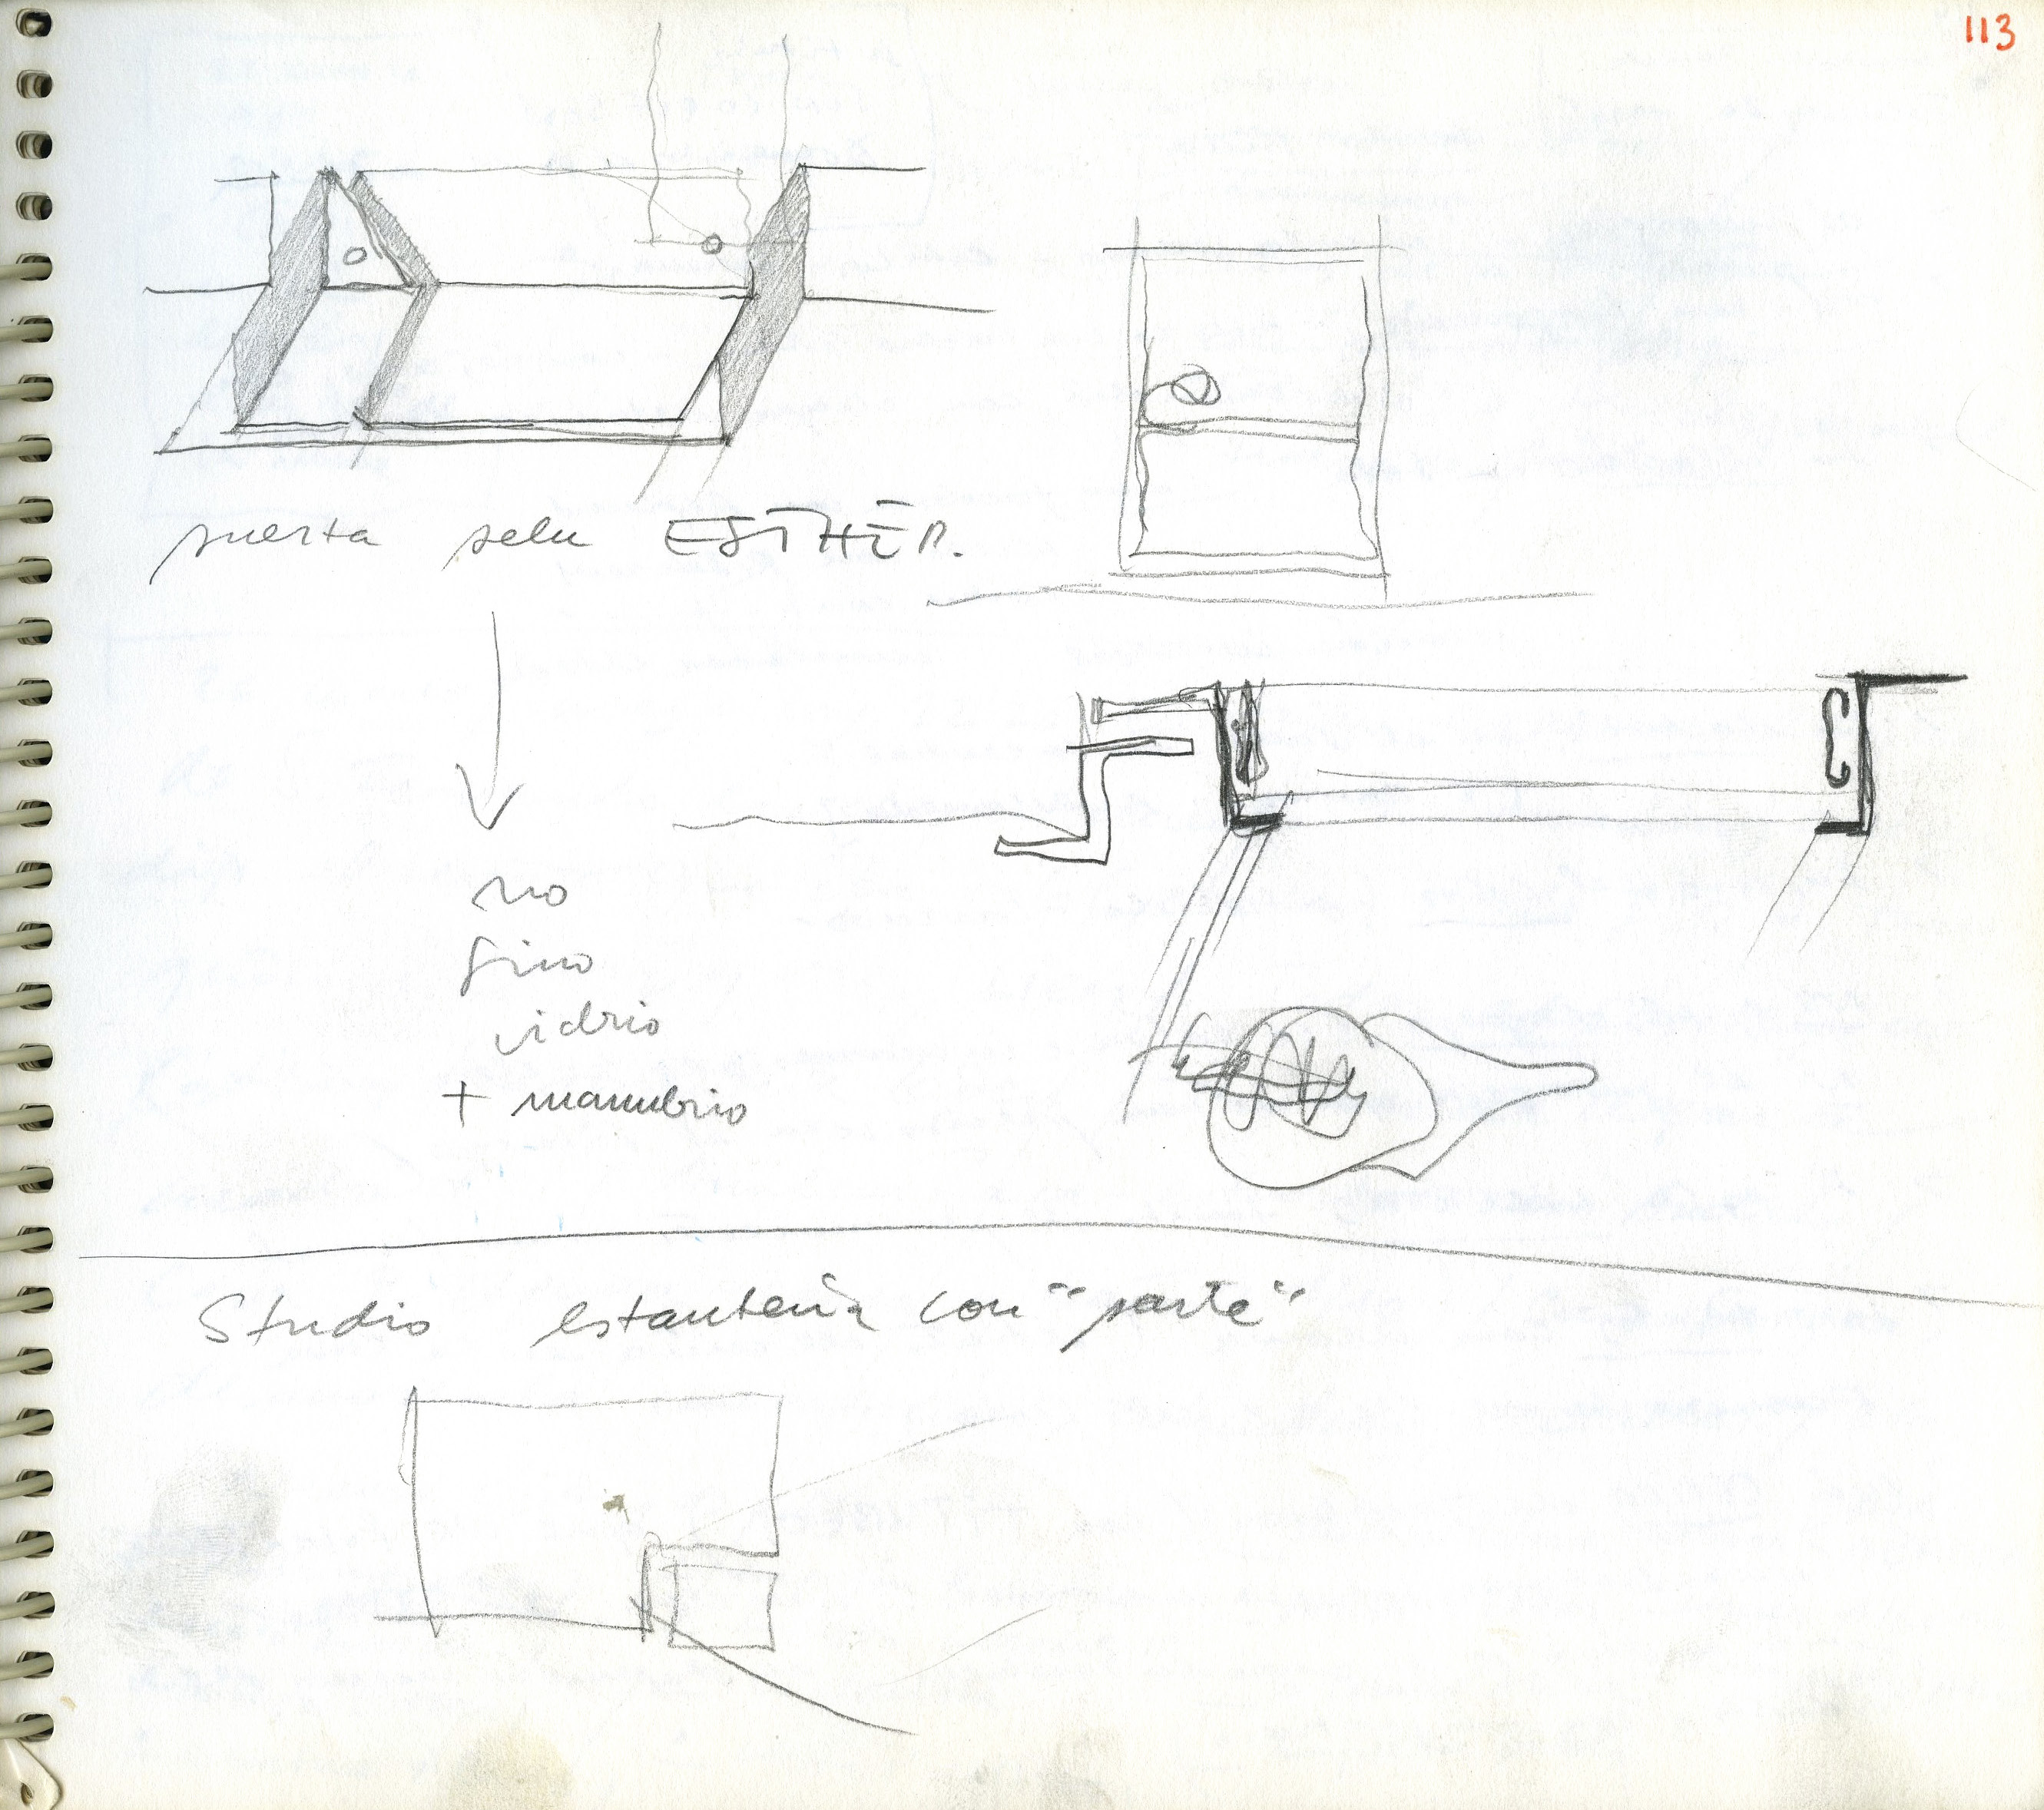 113
puerta sala ESTHER.
no
fino
vidrio
+ manubrio
Studio estantería con "parte"